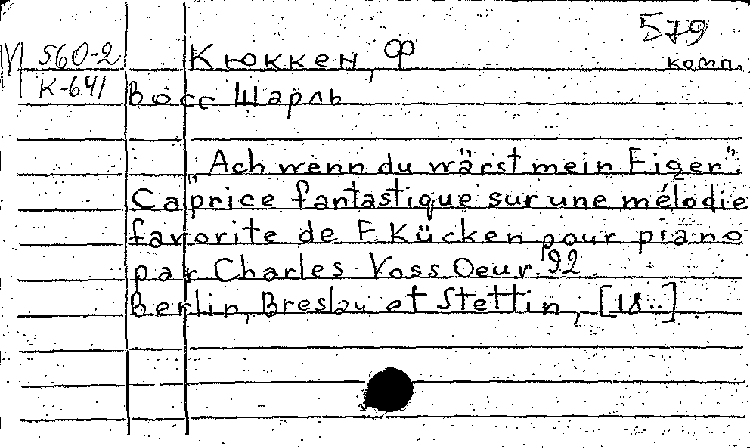 579
М 560-2 Кюккен, Ф комп.
К-641 Восс Шарль
"Ach wenn du wärst mein Eigen".
Caprice fantastique sur une mélodie
favorite de F Kücken pour piano
par Charles Voss Oeuv. 92
Berlin, Breslau et Stettin, [18..]